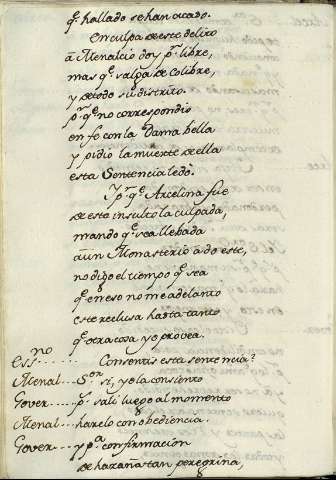 q.e hallado se han acaso.
En culpa de este delito
a Menalcio doy p.r libre,
mas q.e salga de Colibre,
y de todo su distrito.
p.r q.e no correspondio
en fe con la Dama bella
y pidio la muerte de ella
esta Sentencia le dò.
Y p.r q.e Arcelina fue
de este insulto la culpada,
mando q.e sea llebada
a un Monasterio a do este,
no digo el tiempo q.e sea
q.e en eso no me adelanto
este reclusa hasta tanto
q.e otra cosa yo provea.
Ess.no ...... Consentis esta sentencia?
Menal... S.or si, yo la consiento
Gover.... p.s sali luego al momento
Menal... harelo con obediencia.
Gover.... y p.a confirmacion
de hazaña tan peregrina,